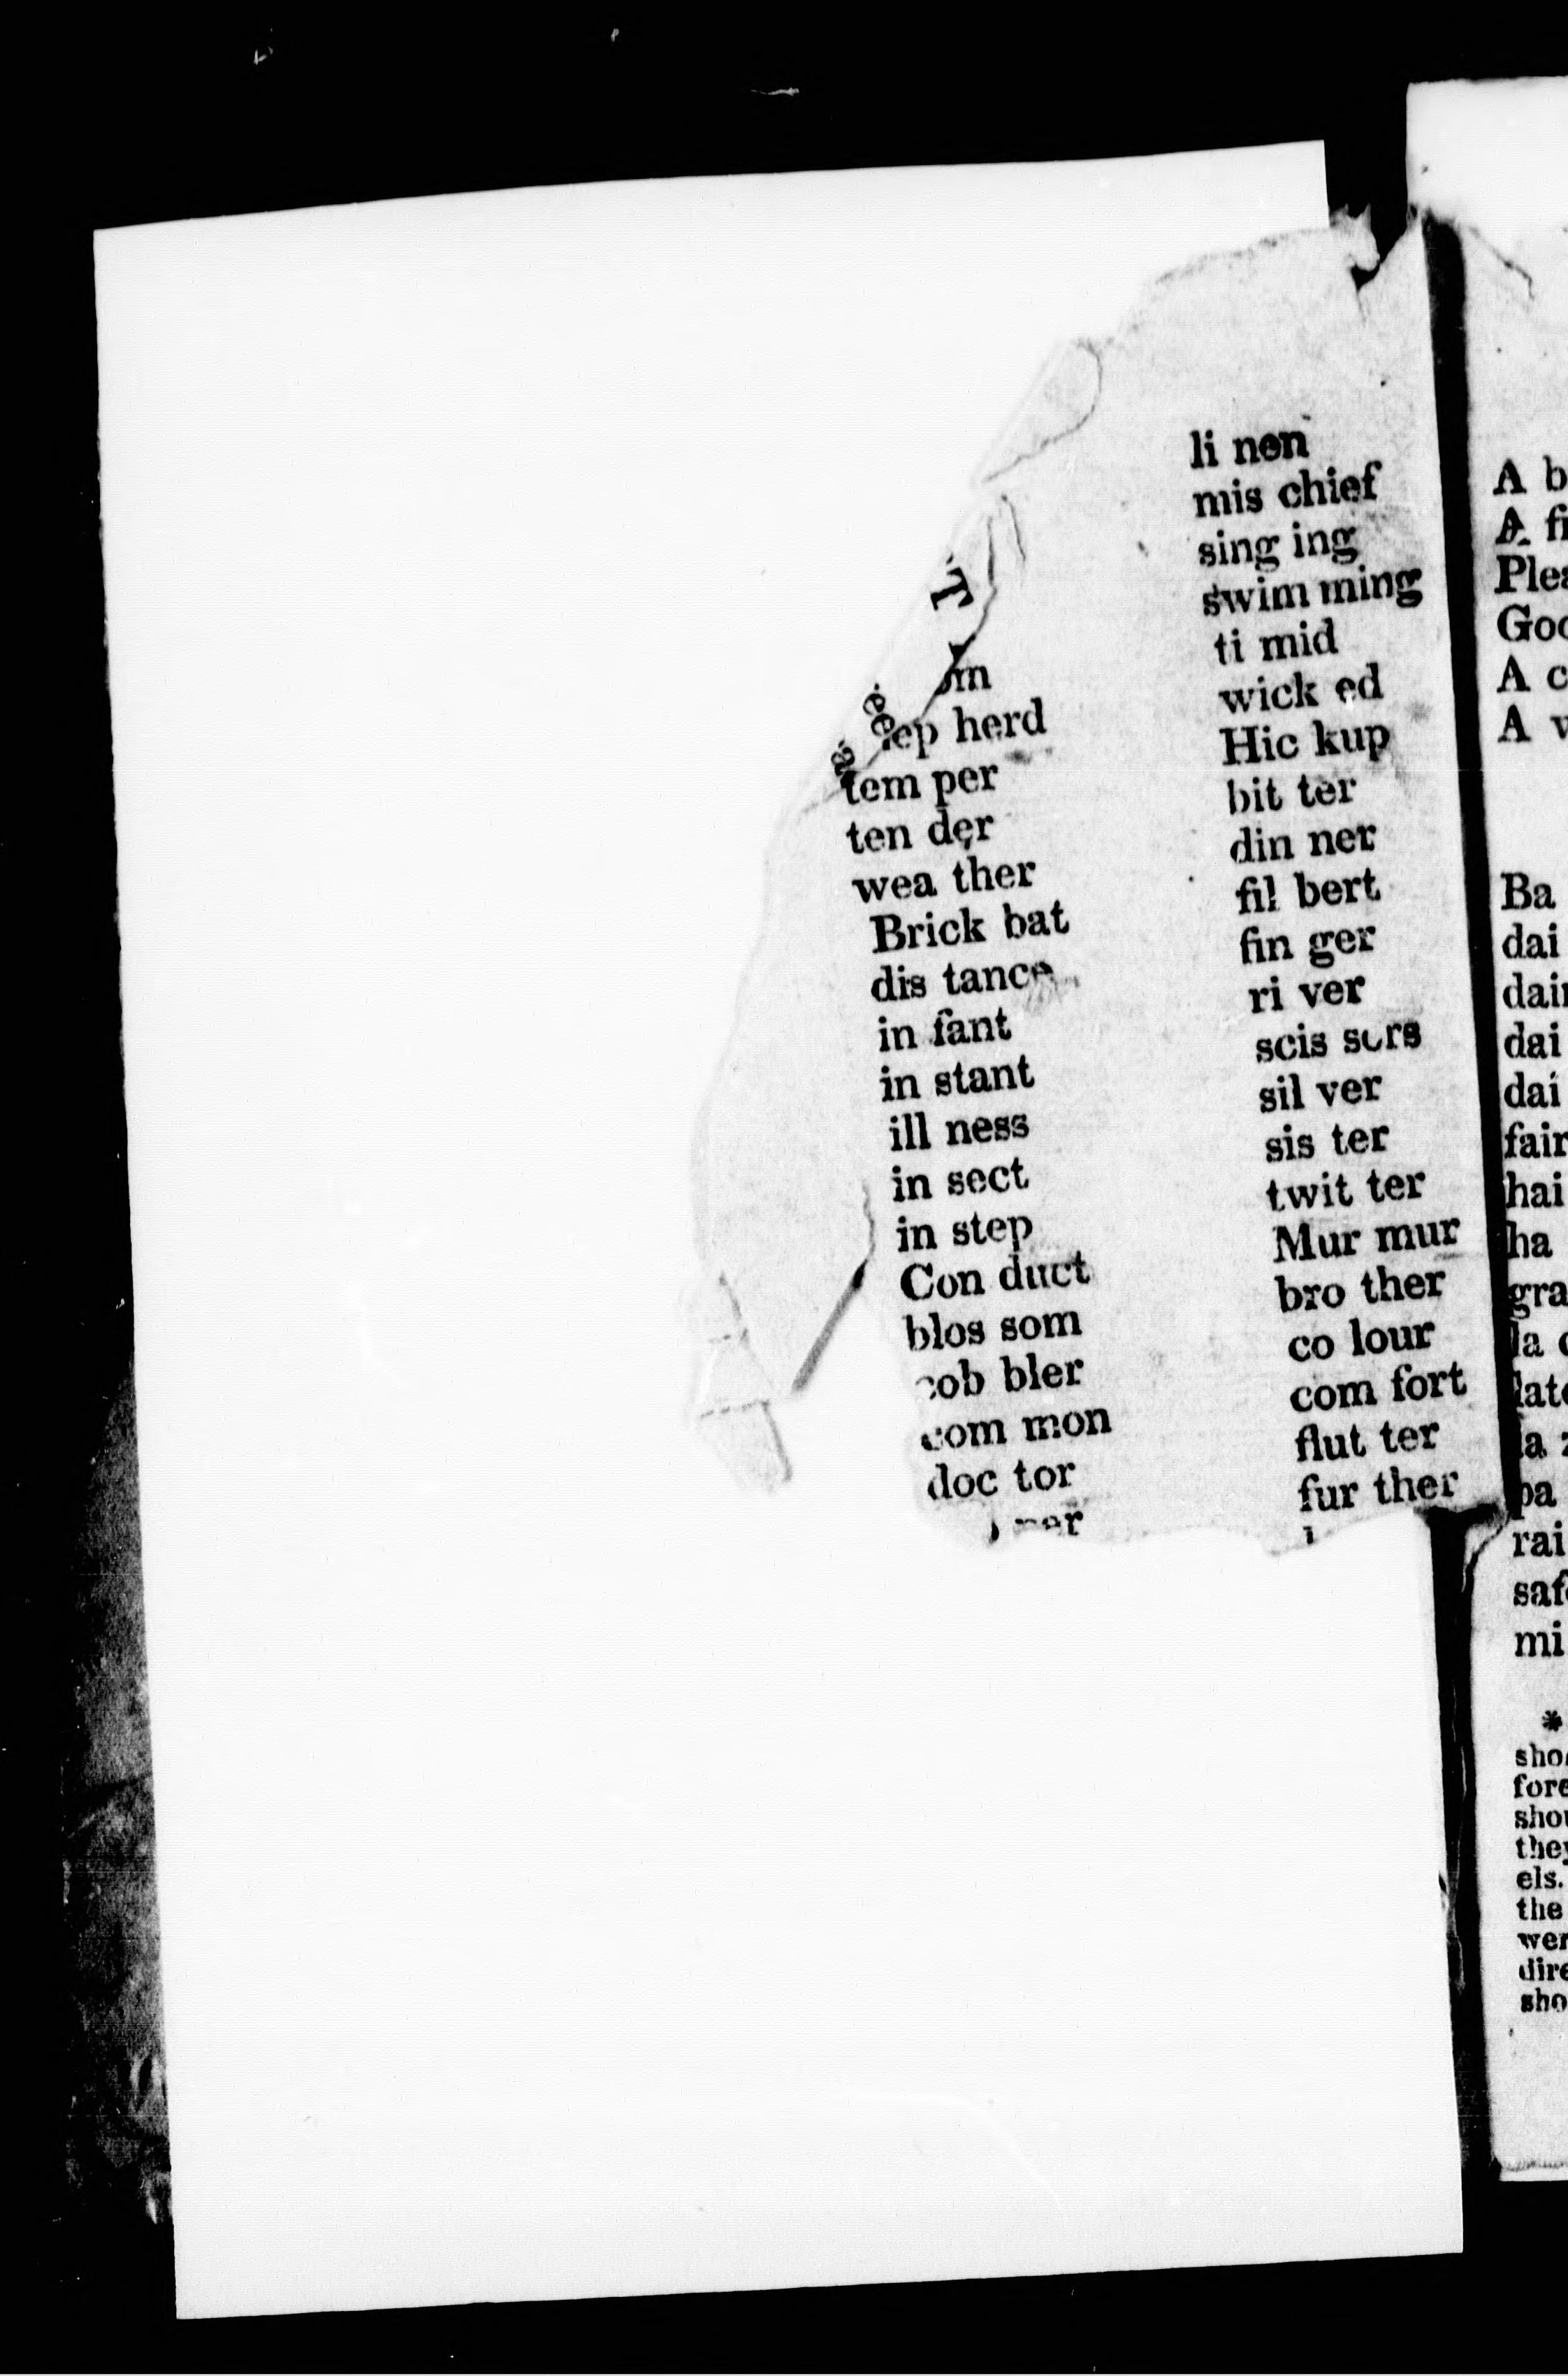 herd
tem per
ten der
wea ther
Brick bat
dis tance
in fant
in stant
ill ness
in sect
in step
Con duct
blos som
cob bler
com mon
doc tor
li nen
mis chief
sing ing
swim ming
ti mid
wick ed
Hic kup
bit ter
din ner
fil bert
fin ger
ri ver
scis sors
sil ver
sis ter
twit ter
Mur mur
bro ther
co lour
com fort
flut ter
fur ther
A
A
A
A
Ba
dai
dai
dai
ha
la
la
pa
rai
mi
*
els.
the